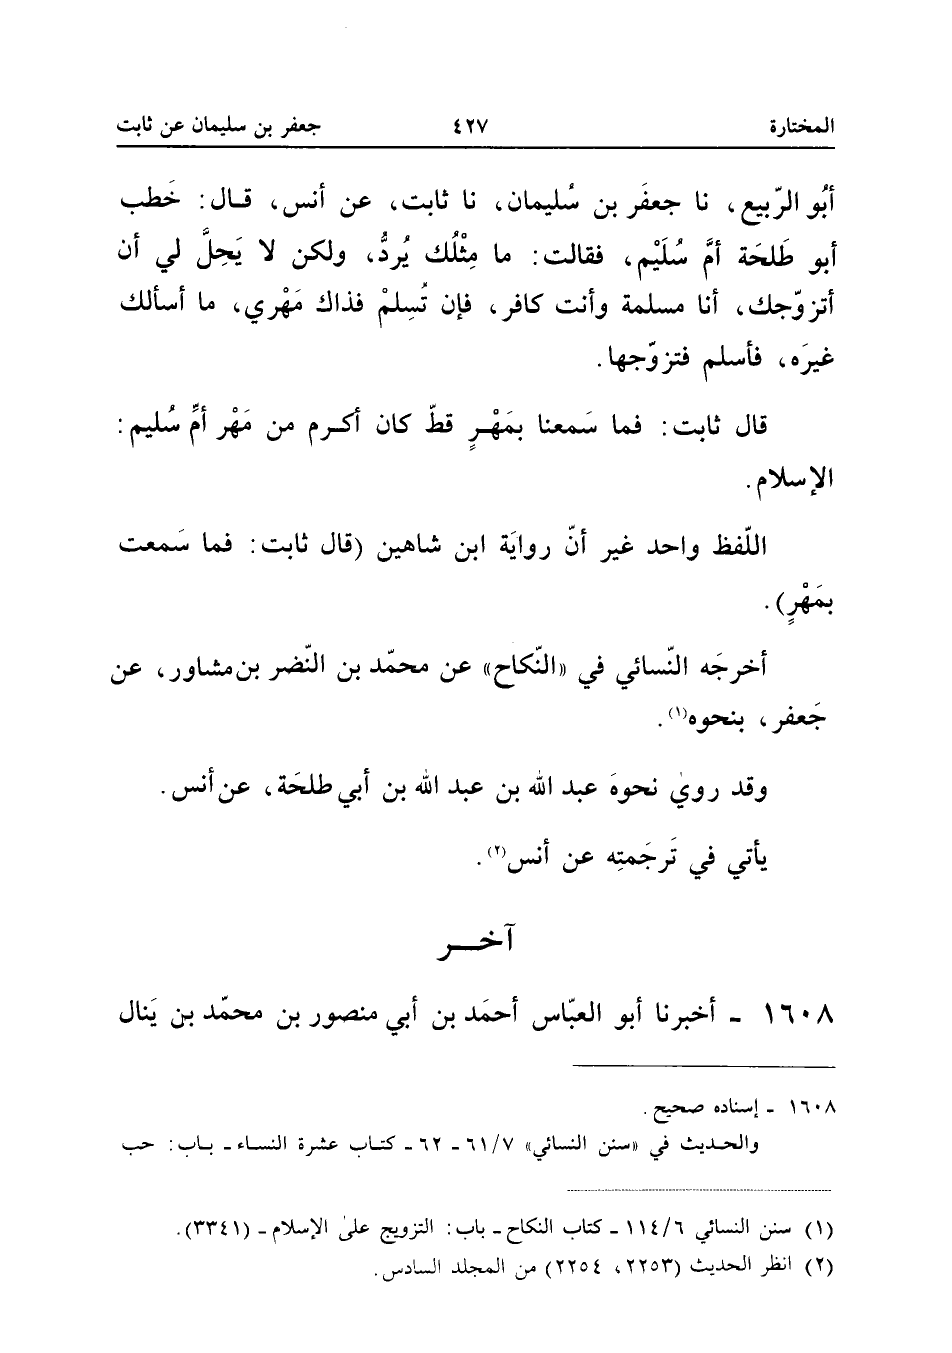 المختارة ٤٢٧ جعفر بن سليمان عن ثابت
أبُو الرّبيع، نا جعفَر بن سُليمان، نا ثابت، عن أنس، قـال: خَطب
أبو طَلحَة أمَّ سُلَيْم، فقالت: ما مِثْلُك يُردُّ، ولكن لا يَحِلَّ لي أن
أتزوّجك، أنا مسلمة وأنت كافر، فإن تُسِلمْ فذاك مَهْري، ما أسألك
غيرَه، فأسلم فتزوّجها.
قال ثابت: فما سَمعنا بمَهْـرٍ قطّ كان أكـرم من مَهْر أمِّ سُليم:
الإسلام.
اللّفظ واحد غير أنّ روايَة ابن شاهين (قال ثابت: فما سَمعت
بمَهْرٍ).
أخرجَه النّسائي في «النّكاح» عن محمّد بن النّضر بن مشاور، عن
جَعفر، بنحوه(١).
وقد رويٰ نحوهَ عبد الله بن عبد الله بن أبي طلحَة، عن أنس.
يأتي في تَرجَمتِه عن أنس(٢).
آخـــر
١٦٠٨ ـ أخبرنا أبو العبّاس أحمَد بن أبي منصور بن محمّد بن يَنال
١٦٠٨ ـ إسناده صحيح.
والحـديث في «سنن النسائي» ٦١/٧ ـ ٦٢ ـ كتـاب عشرة النسـاء ـ بـاب: حب
(١) سنن النسائي ١١٤/٦ ـ كتاب النكاح ـ باب: التزويج علىٰ الإسلام ـ (٣٣٤١).
(٢) انظر الحديث (٢٢٥٣، ٢٢٥٤) من المجلد السادس.